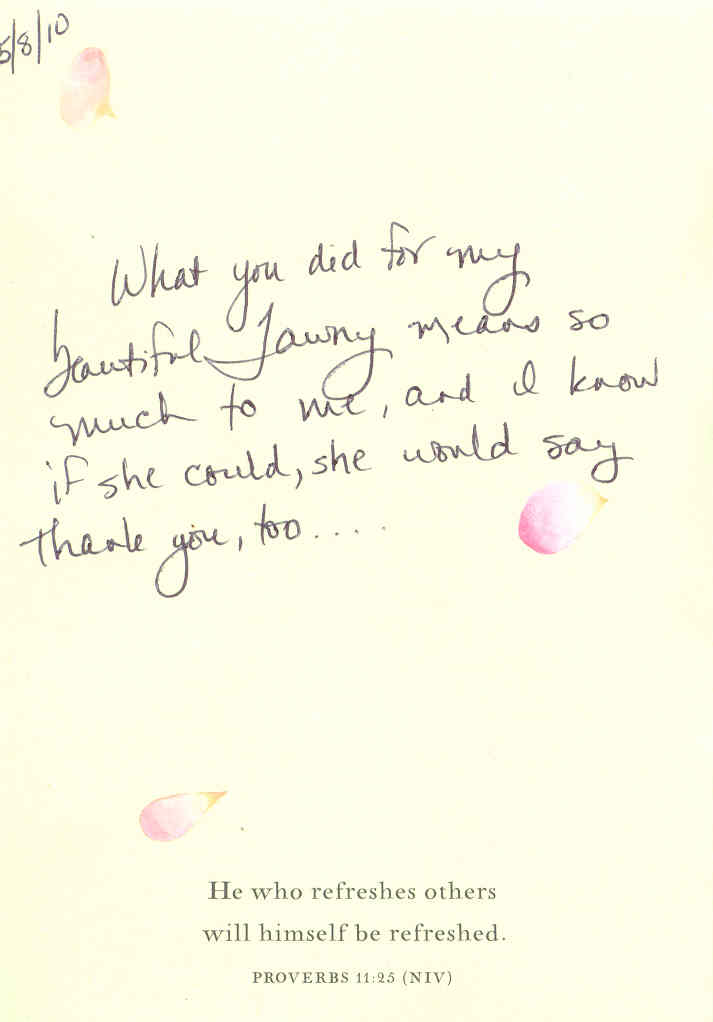 5/8/10
What you did for my
beautiful Tawny means so
much to me, and I know
if she could, she would say
thank you, too....
He who refreshes others
will himself be refreshed.
PROVERBS 11:25 (NIV)